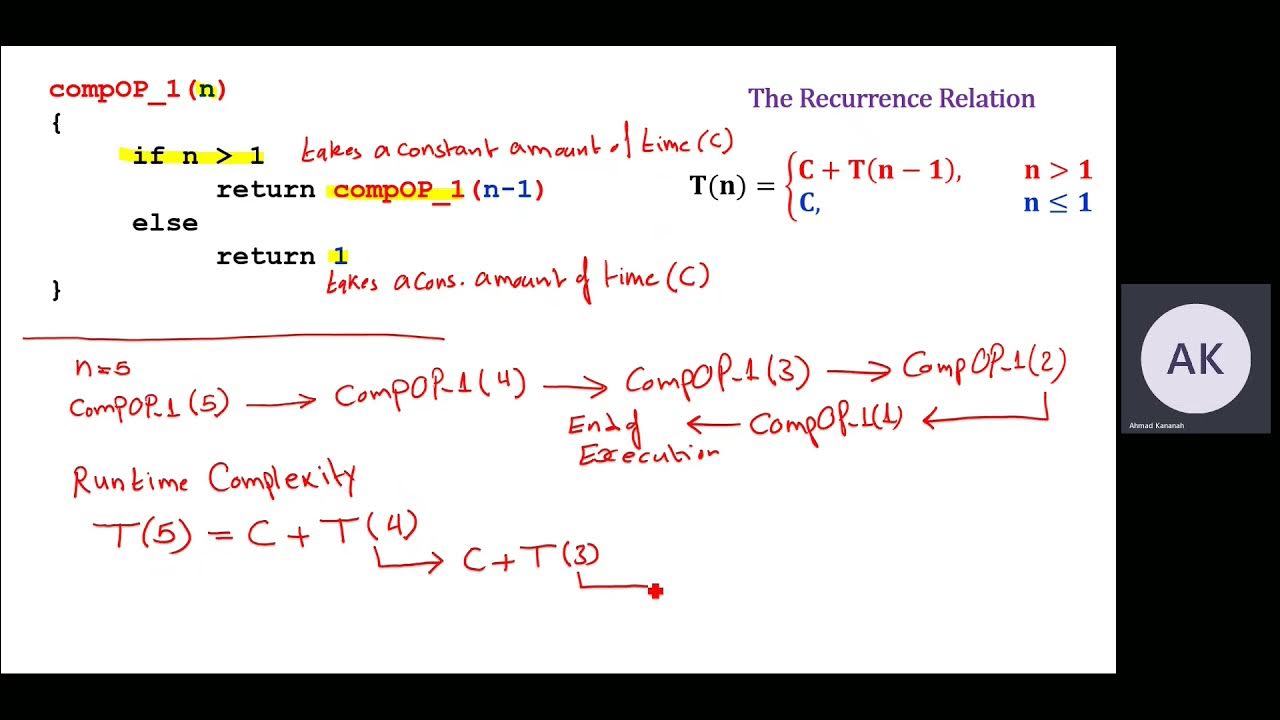 compOP_1(n)
{
if n > 1 takes a constant amount of time (C)
return compOP_1(n-1)
else
return 1
takes a cons. amount of time (C)
}
The Recurrence Relation
T(n) = { C + T(n − 1), n > 1
C, n ≤ 1
n=5
compOP_1(5) → compOP_1(4) → compOP_1(3) → compOP_1(2)
End of ← compOP_1(1) ←
Execution
Runtime Complexity
T(5) = C + T(4)
→ C + T(3)
AK
Ahmad Kananah